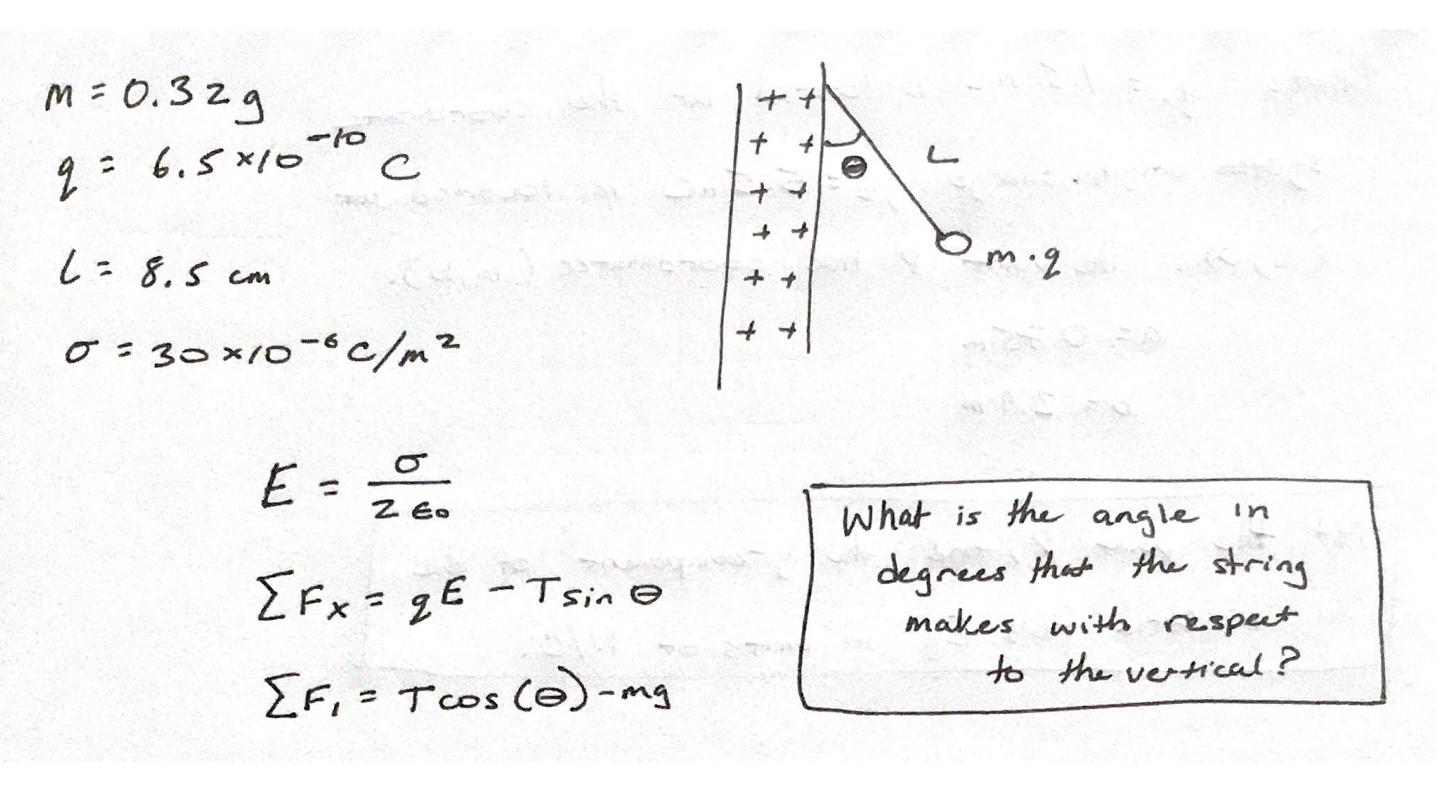 m = 0.32g
q = 6.5 ×10⁻¹⁰ C
L = 8.5 cm
σ = 30 ×10⁻⁶ C/m²
+ +
+ +
+ +
+ +
+ +
+ +
θ
L
m · q
E = σ / 2 ϵ₀
ΣFₓ = qE - T sin θ
ΣF₁ = T cos (θ) - mg
What is the angle in
degrees that the string
makes with respect
to the vertical?